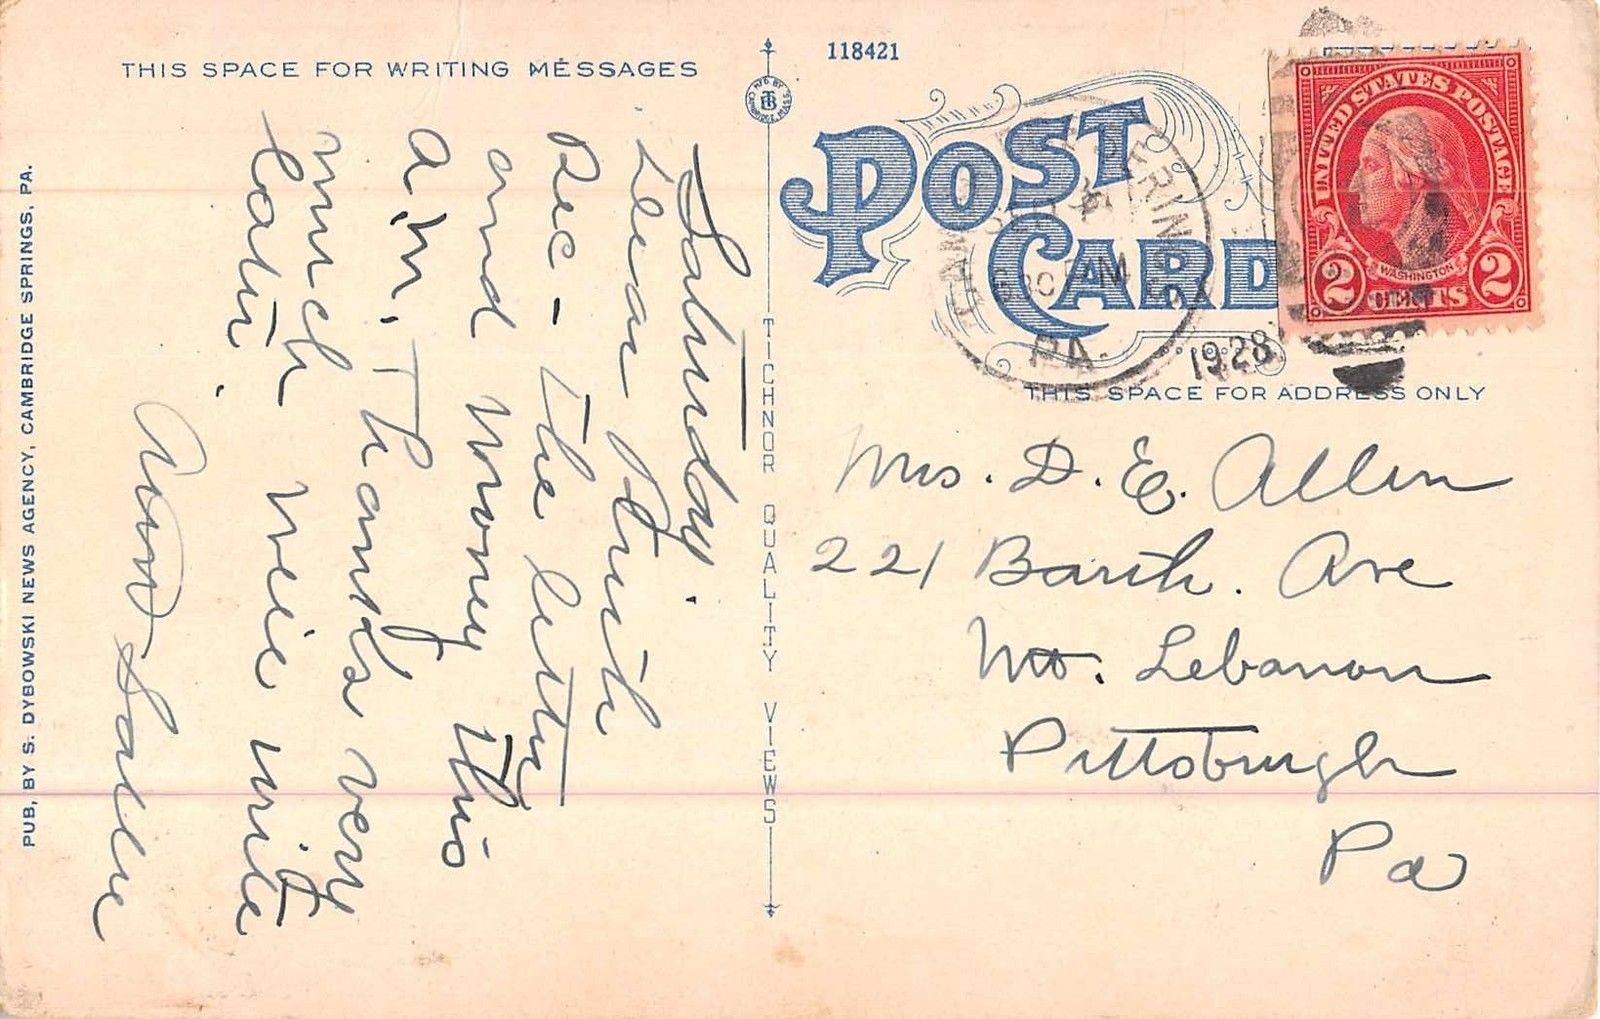 THIS SPACE FOR WRITING MESSAGES
118421
POST
CARD
UNITED STATES POSTAGE
WASHINGTON
2 CENTS 2
6 30 PM
PA.
1928
THIS SPACE FOR ADDRESS ONLY
PUB. BY S. DYBOWSKI NEWS AGENCY, CAMBRIDGE SPRINGS, PA.
TICHNOR QUALITY VIEWS
MFD. BY
TB
CAMBRIDGE, MASS.
Saturday.
Dear
Rec - the letter
and money this
a.m. Thanks very
much will write
later.
Aunt Sallie
Mrs. D. E. Allen
221 Barth. Ave
Mt. Lebanon
Pittsburgh
Pa